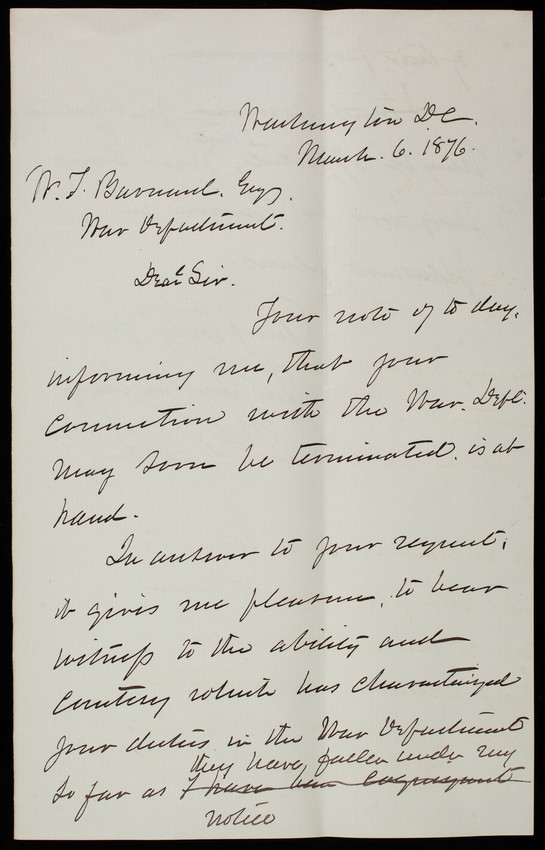 Washington D.C.
March. 6. 1876.
W. T. Barnard. Esq.
War Department.
Dear Sir.
Your note of to day,
informing me, that your
connection with the War. Dept.
may soon be terminated. is at
hand.
In answer to your request,
it gives me pleasure, to bear
witness to the ability and
courtesy which has characterized
your duties in the War Department
they have, fallen under my
so far as I have been cognizant
notice